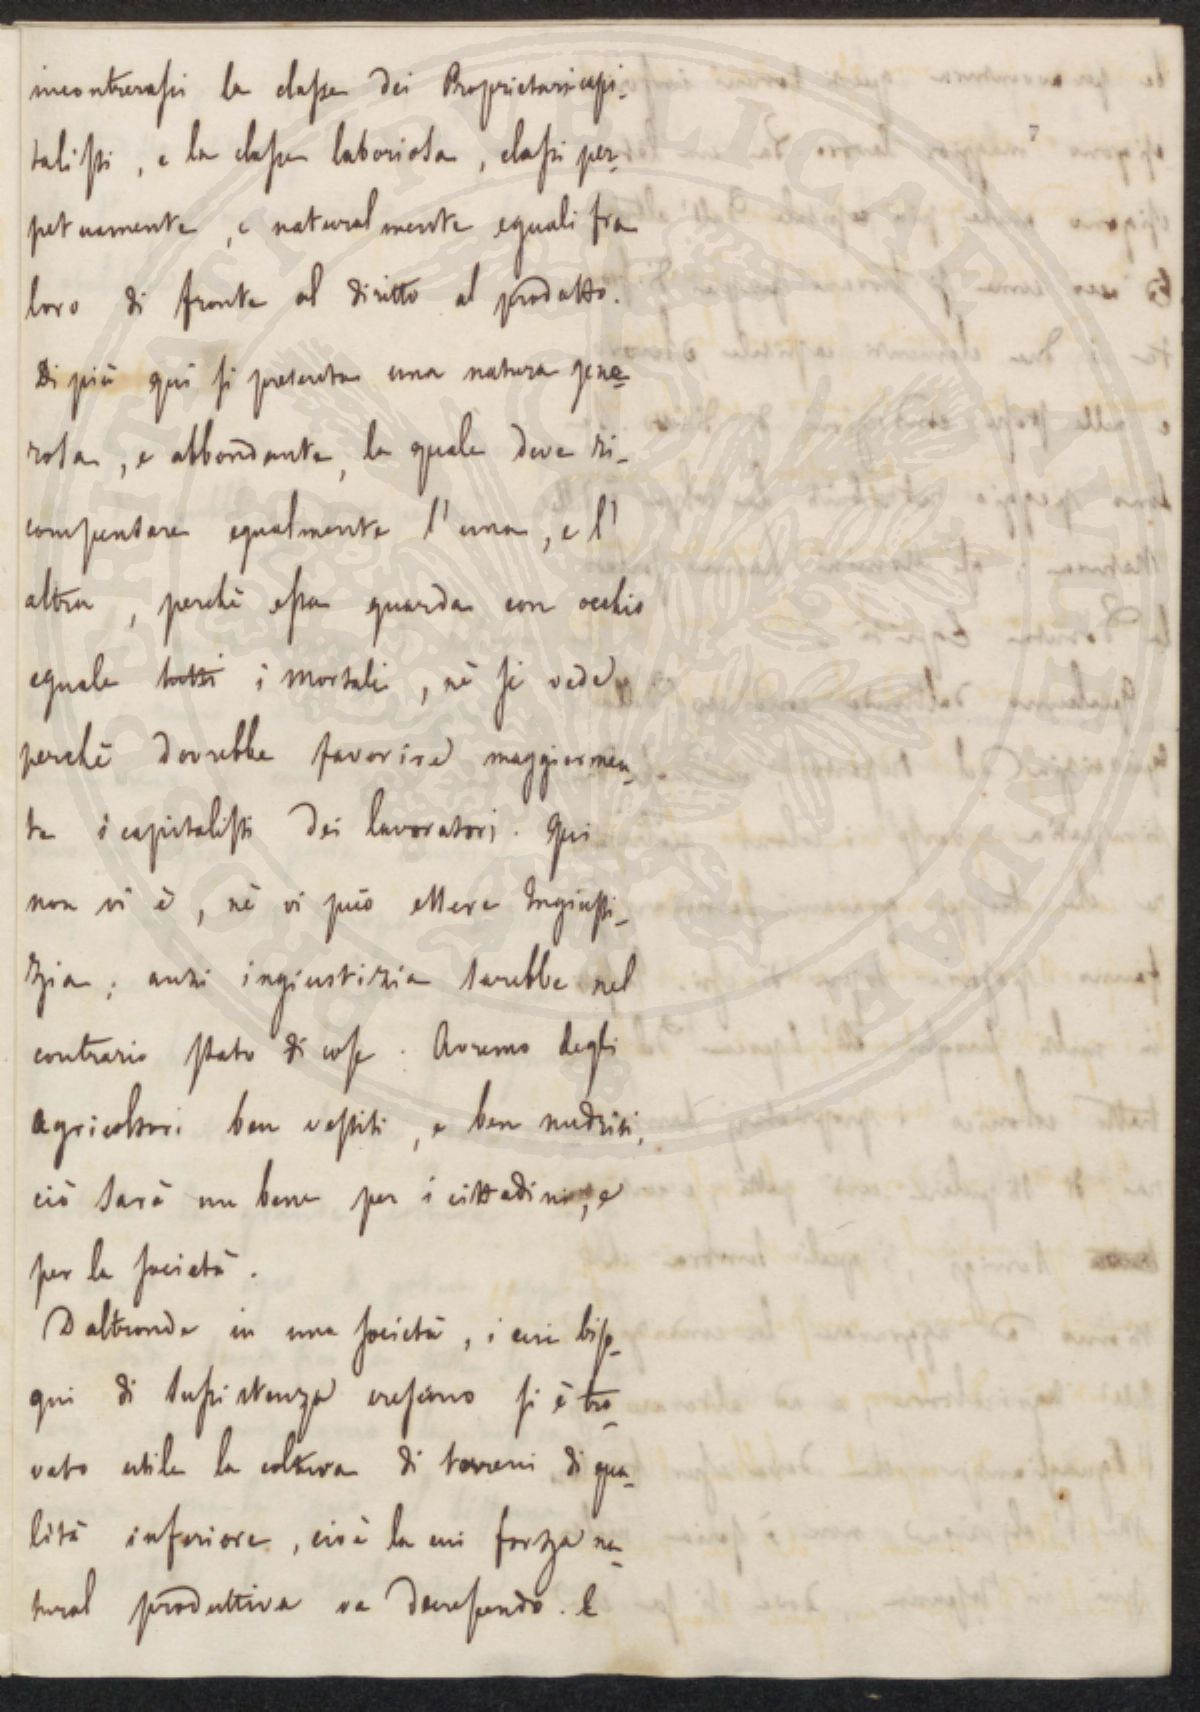 7
incontrerassi la classe dei Proprietari capi-
talisti, e la classe laboriosa, classi per-
petuamente, e naturalmente eguali fra
loro di fronte al diritto al prodotto.
Di più qui si presenta una natura gene-
rosa, e abbondante, la quale deve ri-
compensare egualmente l'una, e l'
altra, perchè essa guarda con occhio
eguale tutti i mortali, nè si vede
perchè dovrebbe favorire maggiormen-
te i capitalisti dei lavoratori. Qui
non vi è, nè vi può essere Ingiusti-
zia; anzi ingiustizia sarebbe nel
contrario stato di cose. Avremo degli
agricoltori ben vestiti, e ben nudriti,
ciò sarà un bene per i cittadini, e
per la società.
Daltronde in una società, i cui biso-
gni di sussistenza crescono si è tro-
vato utile la coltura di terreni di qua-
lità inferiore, cioè la cui forza na-
tural produttiva va decrescendo. E